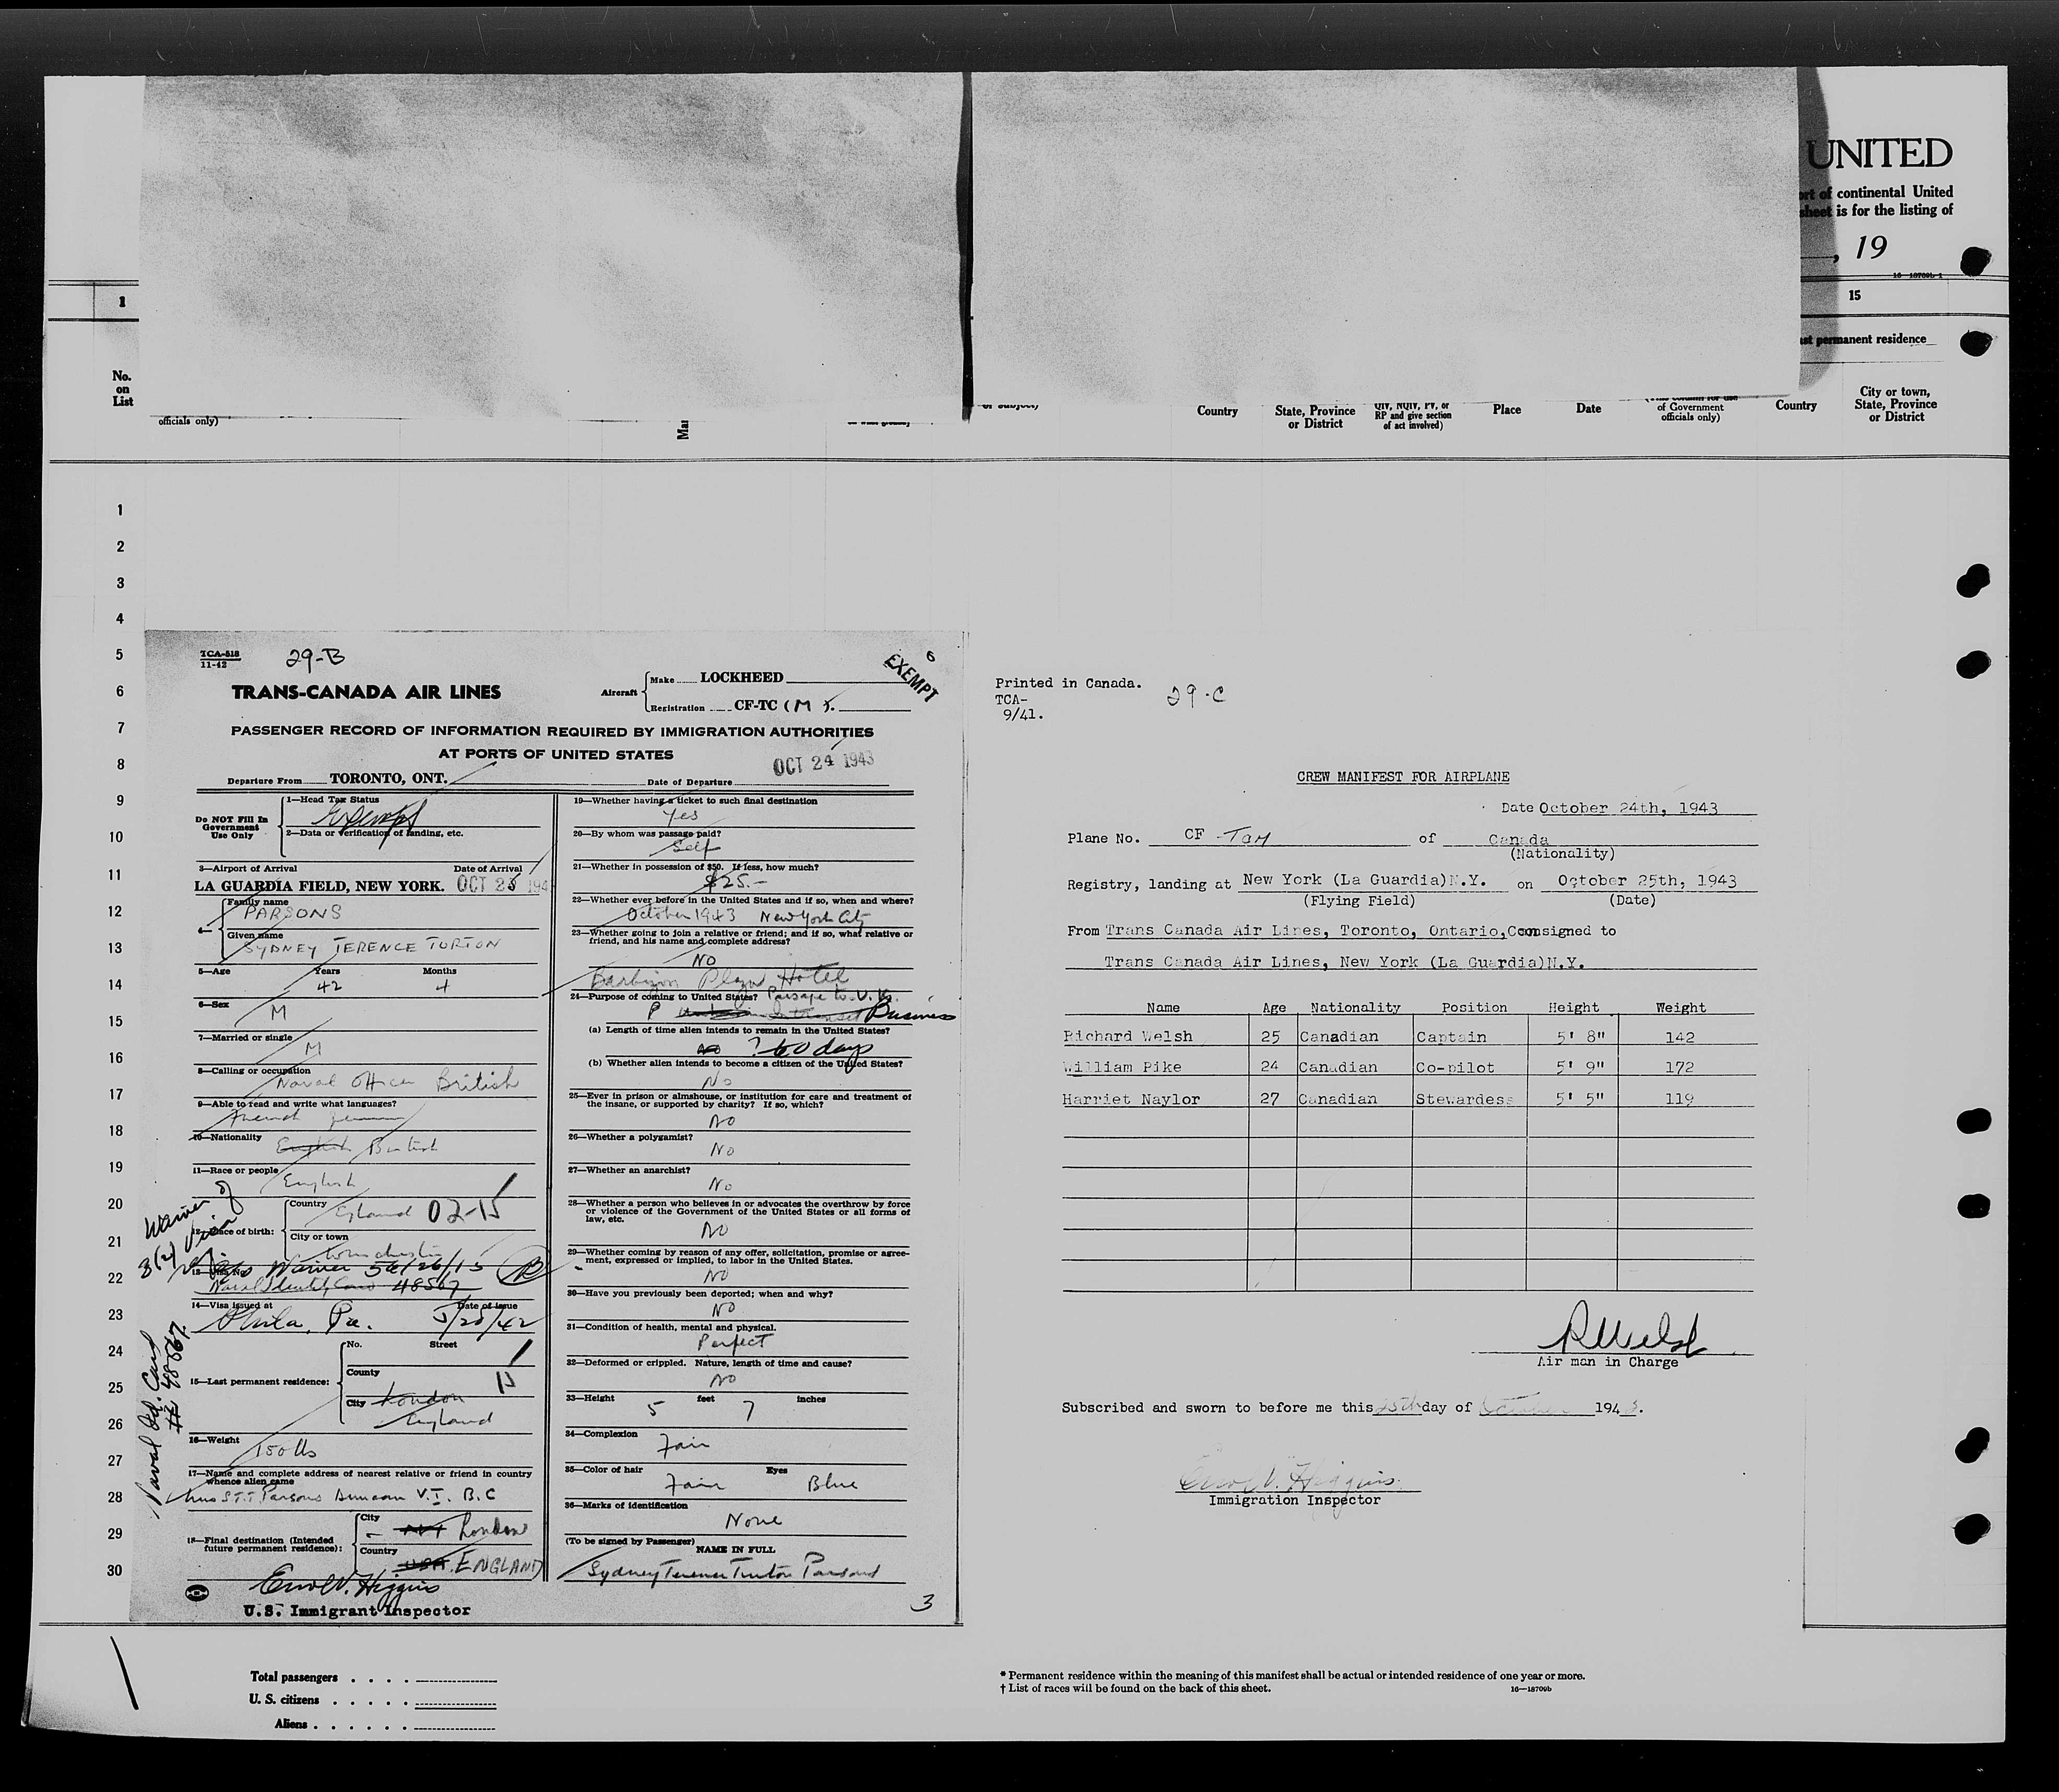 UNITED
ort of continental United
sheet is for the listing of
, 19
16—18709b-1
1
15
ast permanent residence
No.
on
List
officials only)
Mar
or subject)
Country
State, Province
or District
QIV, NQIV, PV, or
RP and give section
of act involved)
Place
Date
(This column for use
of Government
officials only)
Country
City or town,
State, Province
or District
1
2
3
4
5
6
7
8
9
10
11
12
13
14
15
16
17
18
19
20
21
22
23
24
25
26
27
28
29
30
TCA-518
11-42
29-B
6
EXEMPT
TRANS-CANADA AIR LINES
Aircraft
Make LOCKHEED
Registration CF-TC (M).
PASSENGER RECORD OF INFORMATION REQUIRED BY IMMIGRATION AUTHORITIES
AT PORTS OF UNITED STATES
OCT 24 1943
Departure From TORONTO, ONT. Date of Departure
Do NOT Fill In
Government
Use Only
1—Head Tax Status
Exempt
2—Data or verification of landing, etc.
3—Airport of Arrival Date of Arrival
LA GUARDIA FIELD, NEW YORK. OCT 25 194
4—
Family name
PARSONS
Given name
SYDNEY TERENCE TURTON
5—Age Years Months
42 4
6—Sex
M
7—Married or single
M
8—Calling or occupation
Naval Officer British
9—Able to read and write what languages?
French
10—Nationality
English British
11—Race or people
English
12—Place of birth:
Country
England 02-15
City or town
Winchester
Waiver of
Visa
3(2)
13—
Waiver 56/26/15 B
Naval Identity Card 48567
14—Visa issued at Date of Issue
Phila, Pa. 5/28/42
Naval Id. Card
# 48567
15—Last permanent residence:
No. Street
County
15
City London
England
16—Weight
150 lbs
17—Name and complete address of nearest relative or friend in country
whence alien came
Mrs S.T.T. Parsons Duncan V.I. B.C
18—Final destination (Intended
future permanent residence):
City
London
Country
USA ENGLAND
Errol V. Higgins
U.S. Immigrant Inspector
19—Whether having a ticket to such final destination
Yes
20—By whom was passage paid?
Self
21—Whether in possession of $50. If less, how much?
$25.—
22—Whether ever before in the United States and if so, when and where?
October 1943 New York City
23—Whether going to join a relative or friend; and if so, what relative or
friend, and his name and complete address?
NO
Barbizon Plaza Hotel
24—Purpose of coming to United States? Passage to U.K.
P Business
(a) Length of time alien intends to remain in the United States?
no ? 60 days
(b) Whether alien intends to become a citizen of the United States?
No
25—Ever in prison or almshouse, or institution for care and treatment of
the insane, or supported by charity? If so, which?
NO
26—Whether a polygamist?
No
27—Whether an anarchist?
No
28—Whether a person who believes in or advocates the overthrow by force
or violence of the Government of the United States or all forms of
law, etc.
NO
29—Whether coming by reason of any offer, solicitation, promise or agree-
ment, expressed or implied, to labor in the United States.
NO
30—Have you previously been deported; when and why?
NO
31—Condition of health, mental and physical.
Perfect
32—Deformed or crippled. Nature, length of time and cause?
NO
33—Height feet inches
5 7
34—Complexion
Fair
35—Color of hair Eyes
Fair Blue
36—Marks of identification
None
(To be signed by Passenger)
NAME IN FULL
Sydney Terence Turton Parsons
3
Printed in Canada.
TCA-
9/41.
29-C
CREW MANIFEST FOR AIRPLANE
Date October 24th, 1943
Plane No. CF -TCM of Canada
(Nationality)
Registry, landing at New York (La Guardia)N.Y. on October 25th, 1943
(Flying Field) (Date)
From Trans Canada Air Lines, Toronto, Ontario,Consigned to
Trans Canada Air Lines, New York (La Guardia)N.Y.
Name Age Nationality Position Height Weight
Richard Welsh 25 Canadian Captain 5' 8" 142
William Pike 24 Canadian Co-pilot 5' 9" 172
Harriet Naylor 27 Canadian Stewardess 5' 5" 119
R Welsh
Air man in Charge
Subscribed and sworn to before me this 25th day of October 1943.
Errol V. Higgins
Immigration Inspector
Total passengers . . . .
U. S. citizens . . . . .
Aliens . . . . . .
* Permanent residence within the meaning of this manifest shall be actual or intended residence of one year or more.
† List of races will be found on the back of this sheet.
16—18709b